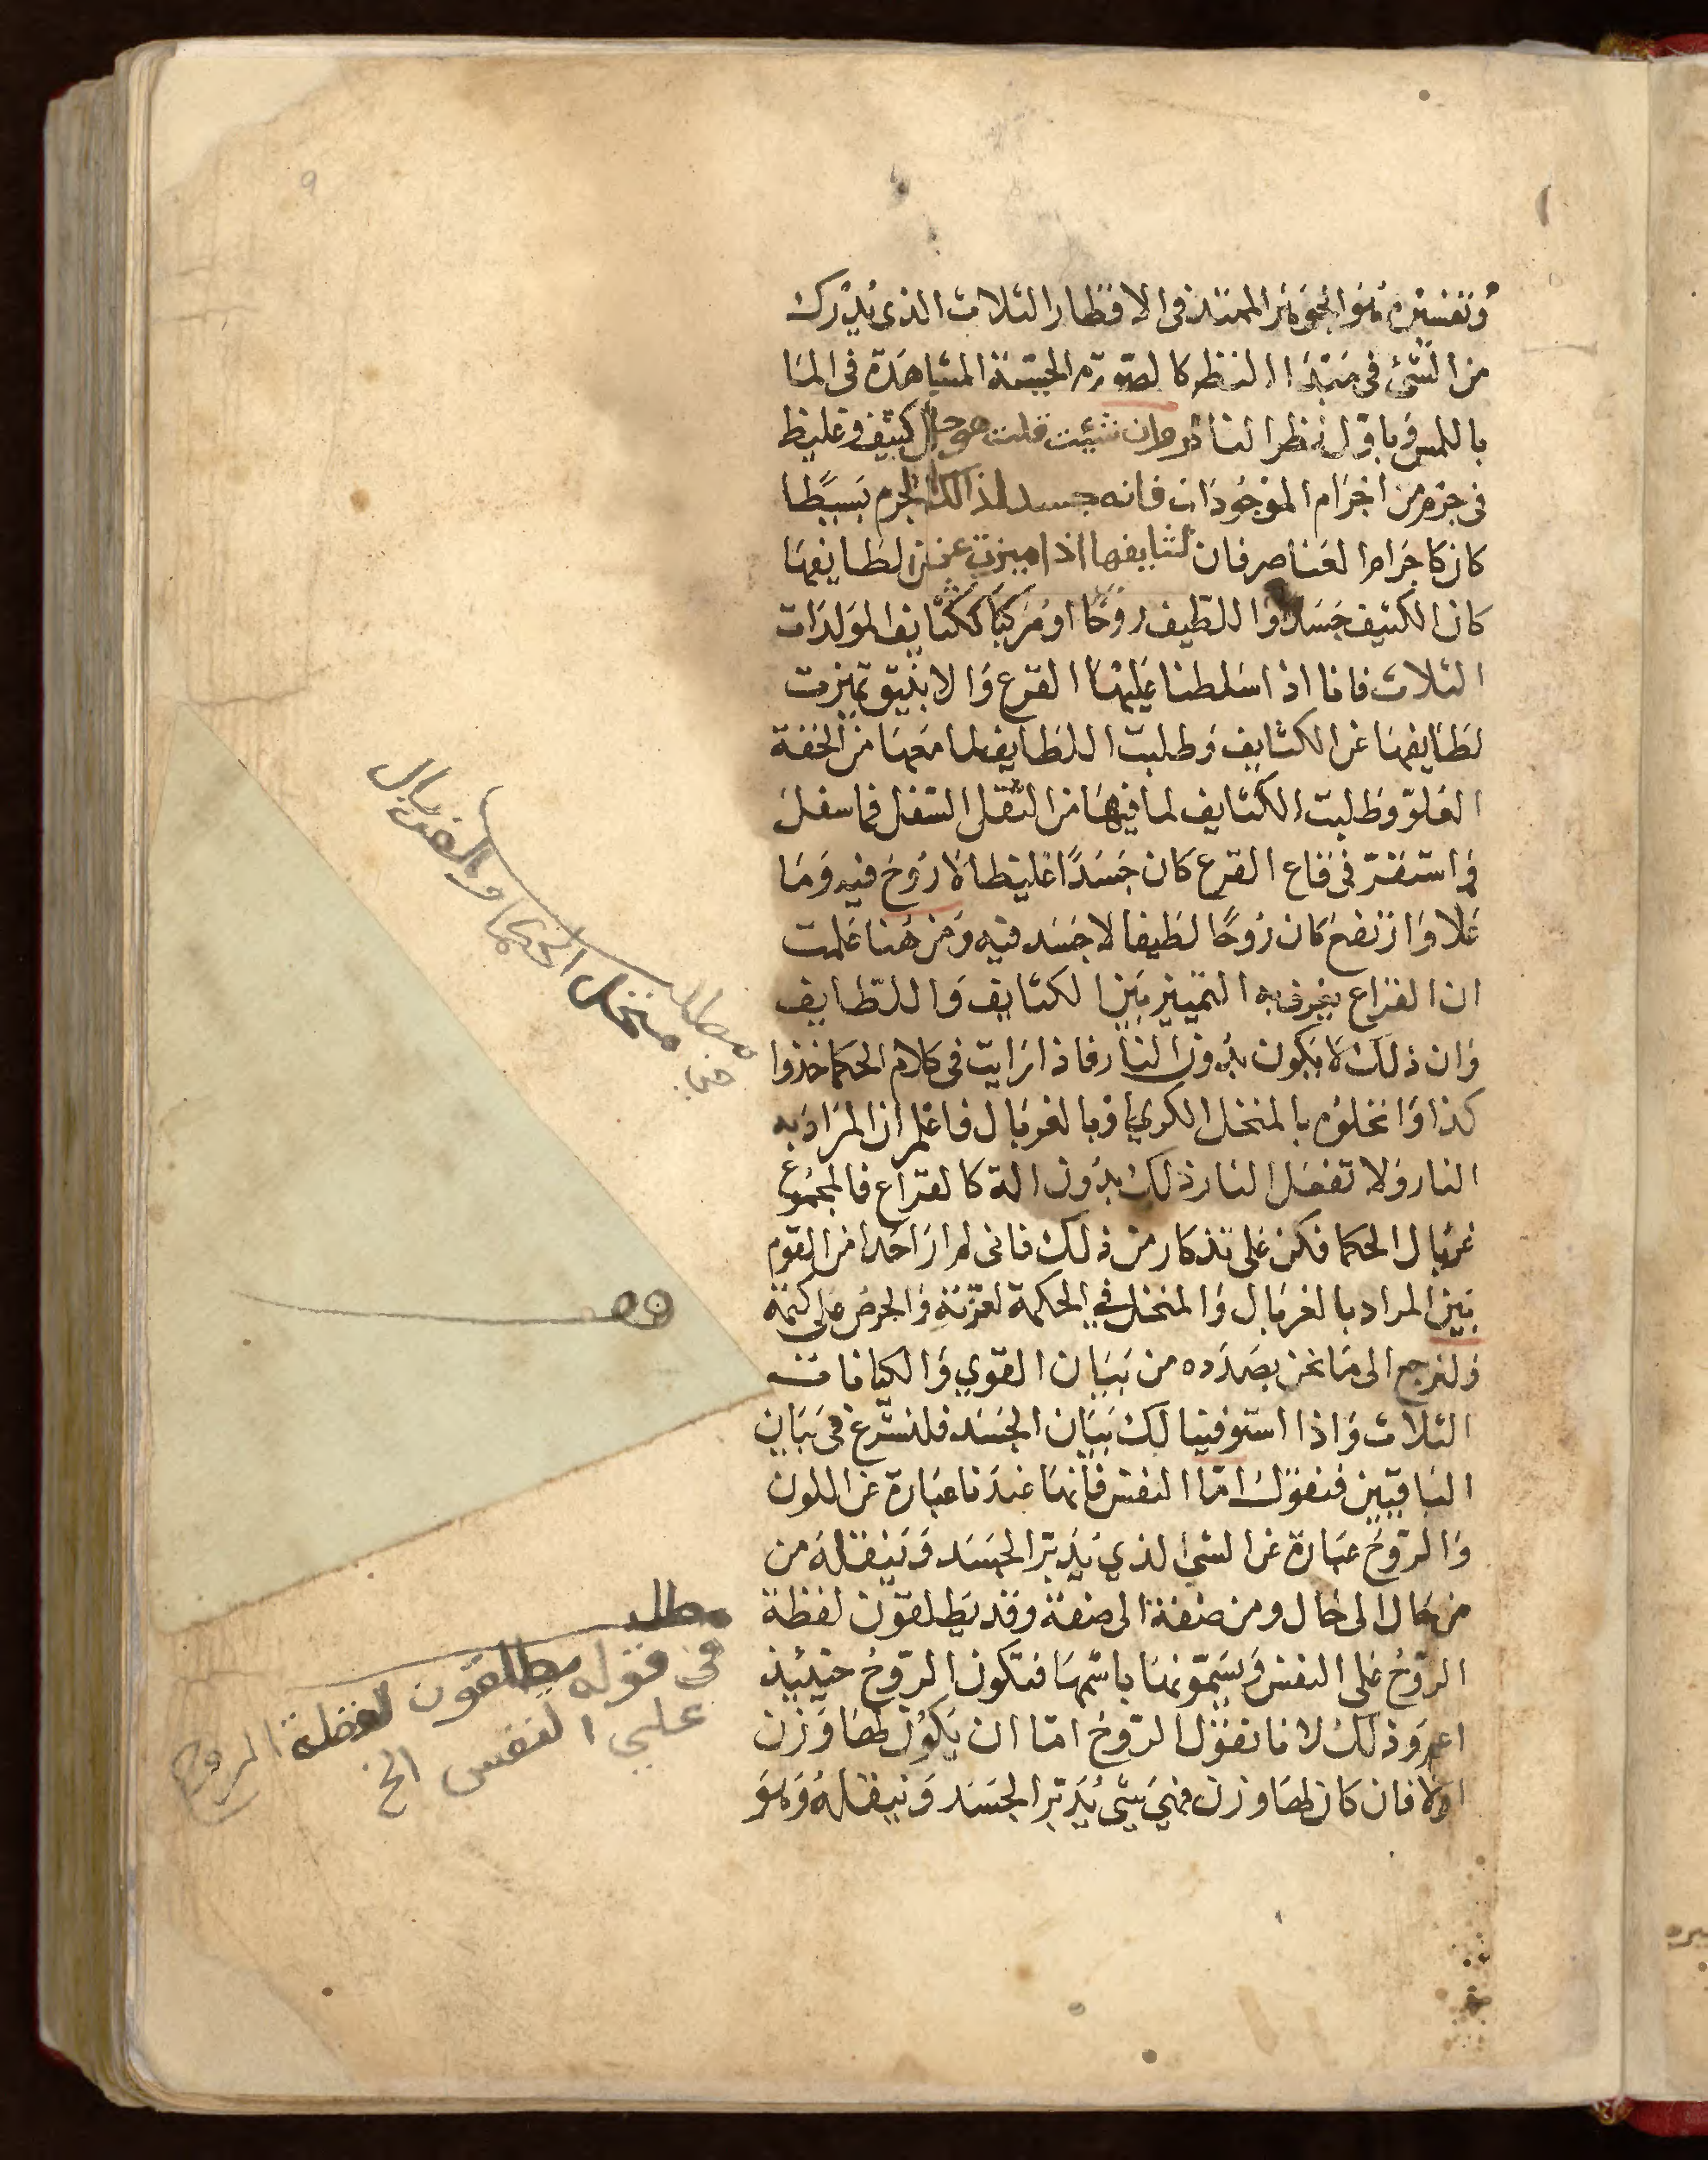 وتفسيره هو الجوهر الممتد في الاقطار الثلاث الذي يدرك
من الشئ في مبتدا النظر كالصورة الجسمية المشاهدة في الما
باللمس وباول نظر الناظر وان شيئت قلت هو حال كثيف وغليظ
في جزء من اجزام الموجودات فانه جسد لذالك الجرم بسيطا
كان كاجرام العناصر فان كثايفها اذا ميزت عن لطايفها
كان الكثيف جسدا واللطيف روحا او مركبا ككثايف المولدات
الثلاث فانا اذا سلطنا عليها القرع والانبيق تميزت
لطايفها عن الكثايف وطلبت اللطايف لما معها من الخفة
العلو وطلبت الكثايف لما فيها من الثقل السفل فما سفل
واستقر في قاع القرع كان جسدا غليظا لا روح فيه وما
علا وارتفع كان روحا لطيفا لا جسد فيه ومن هنا علمت
ان القراع يعرف به التمييز بين الكثايف واللطايف
وان ذلك لا يكون بدون النار فاذا رايت في كلام الحكما خذوا
كذا وانخلوه بالمنخل الكرمي وبالغربال فاعلم ان المراد به
النار ولا تفعل النار ذلك بدون الة كالقراع فالمجموع
غربال الحكما فكن على تذكار من ذلك فاني لم ار احدا من القوم
بين المراد بالغربال والمنخل في الحكمة لعزته والحرص على كتمه
ولنرجع الى ما نحن بصدده من بيان القوي والكيانات
الثلاث واذا استوفينا لك بيان الجسد فلنشرع في بيان
الباقيين فنقول اما النفس فانها عندنا عبارة عن اللون
والروح عبارة عن الشئ الذي يدبر الجسد وينقله من
من حال الى حال ومن صفة الى صفة وقد يطلقون لفظة
الروح على النفس ويسمونها باسمها فتكون الروح حينيذ
اعم وذلك لانا نقول الروح اما ان يكون لها وزن
اولا فان كان لها وزن فهي شئ يدبر الجسد وينقله وهو
مطلب
في منخل الحكما والغربال
مطلب
في قوله يطلقون لفظة الروح
علي النفس الخ